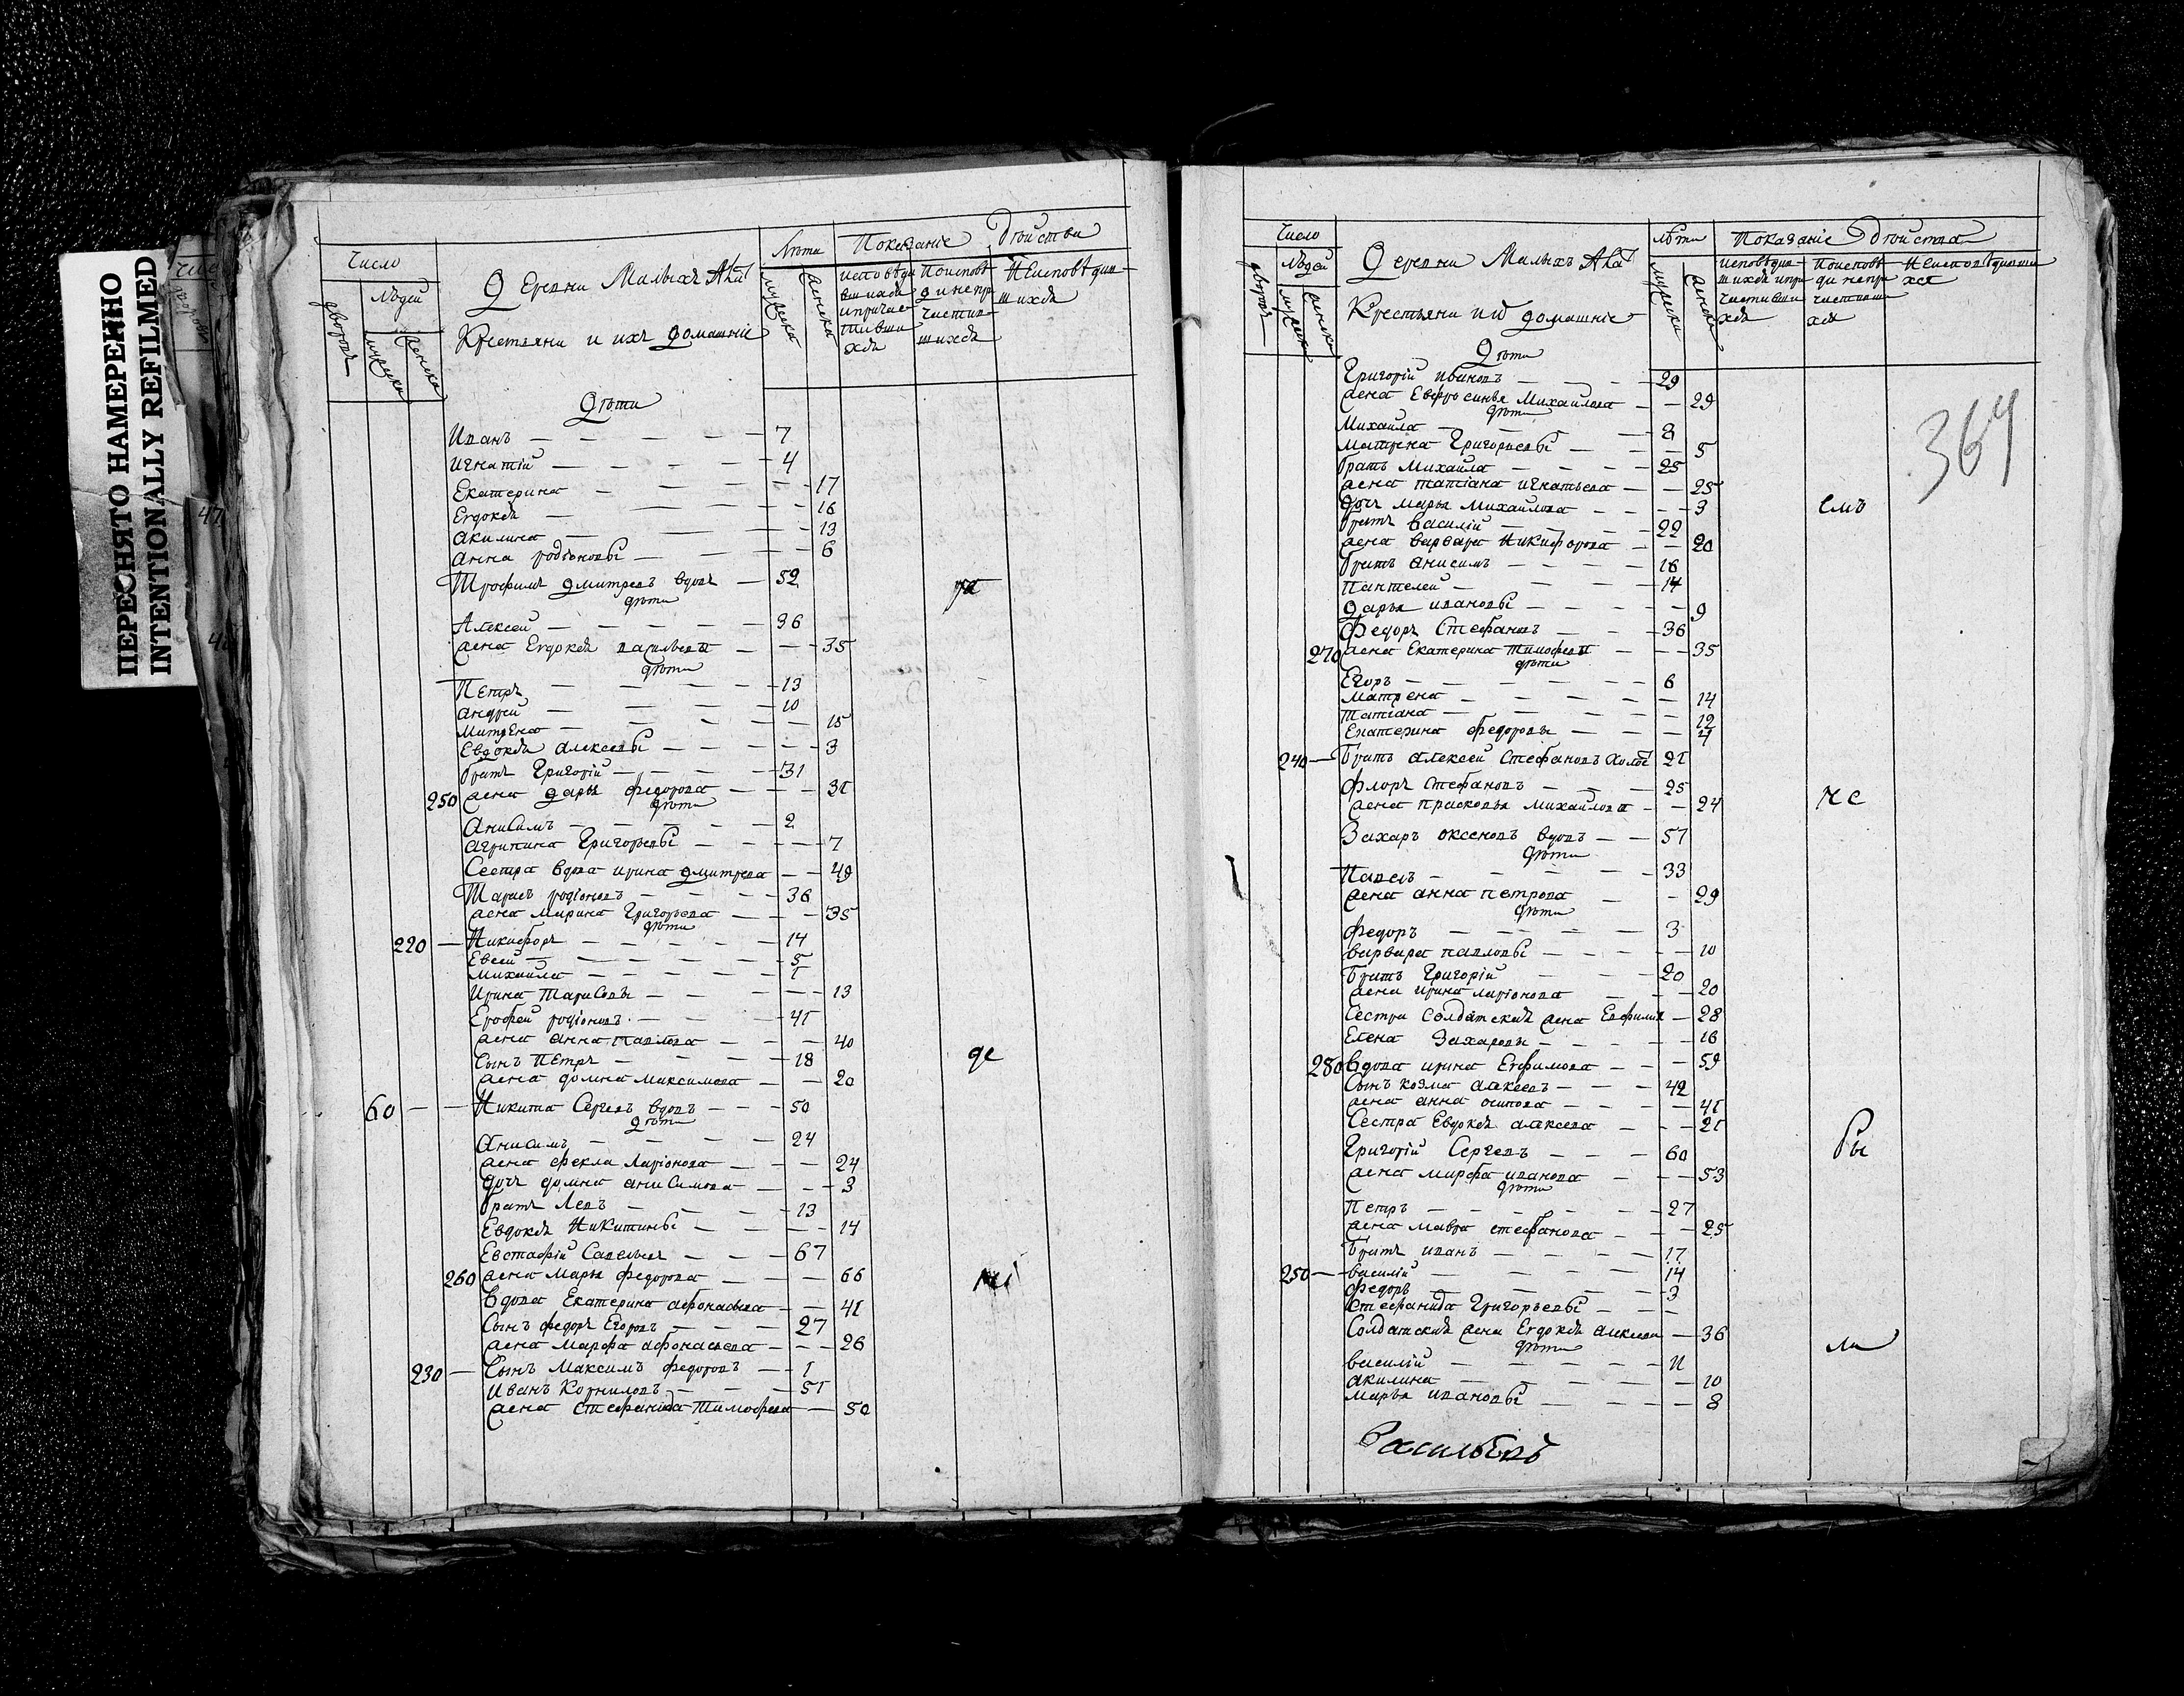 ПЕРЕСНЯТО НАМЕРЕННО
INTENTIONALLY REFILMED
47
Число
Людей
дворовъ
мужеска
женска
Деревни Малыхъ
Крестьяни и ихъ домашніе
Лѣта
мужеска
женска
Показаніе Двойства
исповѣда
вшихся
и причас
тивши
хся
поисповѣ
ди непр
частив
шихся
Неисповѣдав
шихся
Дѣти
Иванъ — 7
Игнатій — 4
Екатерина — 17
Евдокея — 16
акилина — 13
анна родіоновы — 6
Трофимъ дмитревъ вдовъ — 52
дѣти
Алексей — 36
жена Евдокея васильева — 35
дѣти
Петръ — 13
андрей — 10
Матрена — 15
Евдокея алексеевы — 3
братъ Григорій — 31
250 жена дарья федорова — 31
дѣти
Анисимъ — 2
агрипина Григорьевы — 7
Сестра вдова ирина дмитрева — 49
Тарасъ родіоновъ — 36
жена марина Григорьева — 35
дѣти
220 — Никифоръ — 14
Евсей — 5
михайла — 1
Ирина Тарасовы — 13
Ерофей родіоновъ — 41
жена анна павлова — 40
Сынъ Петръ — 18
де
жена домна максимова — 20
60 — Никита Сергеевъ вдовъ — 50
дѣти
Анисимъ — 24
жена фекла Ларіонова — 24
дочь домна анисимова — 3
братъ Левъ — 13
Евдокея Никитины — 14
Евстафій Савельевъ — 67
260 жена марья федорова — 66
вдова Екатерина афонасьева — 41
Сынъ федоръ Егоровъ — 27
жена Марфа афонасьева — 26
230 — Сынъ Максимъ федоровъ — 1
Иванъ Корниловъ — 51
жена стефанида Тимофеева — 50
Число
людей
дворовъ
мужеска
женска
Деревни Малыхъ
Крестьяни и их домашніе
лѣта
мужеска
женска
Показаніе Двойства
исповѣдав
шихся и при
частивши
хся
поисповѣ
ди непри
частивши
хся
Неисповѣдавши
хся
Дѣти
364
Григорій ивановъ — 29
жена Евфросинья Михайлова — 29
дѣти
Михайла — 8
матрена Григорьевы — 5
братъ Михайла — 25
жена татіана игнатьева — 25
дочь марья михайлова — 3
братъ василій — 22
жена варвара Никифорова — 20
братъ анисимъ — 16
Пантелей — 14
дарья ивановы — 9
Федоръ Стефановъ — 36
270 жена Екатерина тимофеева — 35
дѣти
Егоръ — 6
матрена — 14
татіана — 12
Екатерина федоровы — 4
240 — братъ алексей Стефановъ холос 21
флоръ стефановъ — 25
жена прасковья михайлова — 24
Захаръ оксеновъ вдовъ — 57
дѣти
Павелъ — 33
жена анна петрова — 29
дѣти
федоръ — 3
варвара павловы — 10
братъ Григорій — 20
жена ирина ларіонова — 20
Сестра Солдатская жена Евфимия — 28
Елена Захаровы — 16
280 вдова ирина Евфимова — 59
Сынъ козма алексеевъ — 42
жена анна осипова — 41
Сестра Евдокея алексеева — 21
Григорій Сергеевъ — 60
жена марфа иванова — 53
дѣти
Петръ — 27
жена мавра стефанова — 25
братъ иванъ — 17
250 — василій — 14
федоръ — 3
Стефанида Григорьевы —
Солдатская жена Евдокея алексеева — 36
дѣти
василій — 11
акилина — 10
марья ивановы — 8
Васильевъ